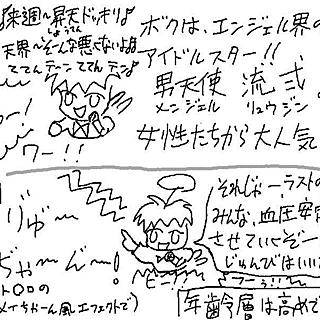 ♪来週〜昇天ドッキリ♪
しょうてん
天界〜そんな悪くないよ♪
ててんテーン ててんテーン♪
ワー!!
ボクは、エンジェル界の
アイドルスター!!
男天使 流弐
メンジェル リュウジン
女性たちから大人気
りゅ〜
ぢゃ〜ん〜!
ト〇〇の
メイちゃーん風エフェクトで)
ビー!
それじゃーラストの
みんな、血圧安定
させていくぞー
じゅんびはいい
フーぅ!!
年齢層は高めで